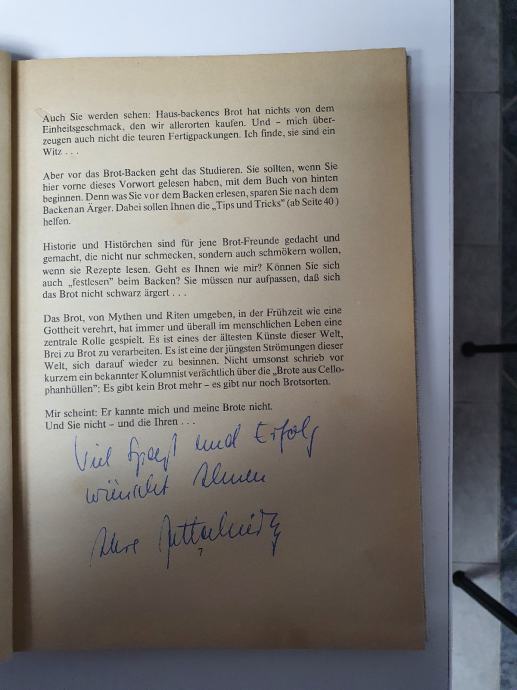 Auch Sie werden sehen: Haus-backenes Brot hat nichts von dem
Einheitsgeschmack, den wir allerorten kaufen. Und – mich über-
zeugen auch nicht die teuren Fertigpackungen. Ich finde, sie sind ein
Witz . . .
Aber vor das Brot-Backen geht das Studieren. Sie sollten, wenn Sie
hier vorne dieses Vorwort gelesen haben, mit dem Buch von hinten
beginnen. Denn was Sie vor dem Backen erlesen, sparen Sie nach dem
Backen an Ärger. Dabei sollen Ihnen die „Tips und Tricks” (ab Seite 40 )
helfen.
Historie und Histörchen sind für jene Brot-Freunde gedacht und
gemacht, die nicht nur schmecken, sondern auch schmökern wollen,
wenn sie Rezepte lesen. Geht es Ihnen wie mir? Können Sie sich
auch „festlesen” beim Backen? Sie müssen nur aufpassen, daß sich
das Brot nicht schwarz ärgert . . .
Das Brot, von Mythen und Riten umgeben, in der Frühzeit wie eine
Gottheit verehrt, hat immer und überall im menschlichen Leben eine
zentrale Rolle gespielt. Es ist eines der ältesten Künste dieser Welt,
Brei zu Brot zu verarbeiten. Es ist eine der jüngsten Strömungen dieser
Welt, sich darauf wieder zu besinnen. Nicht umsonst schrieb vor
kurzem ein bekannter Kolumnist verächtlich über die „Brote aus Cello-
phanhüllen”: Es gibt kein Brot mehr – es gibt nur noch Brotsorten.
Mir scheint: Er kannte mich und meine Brote nicht.
Und Sie nicht – und die Ihren . . .
Viel Spaß und Erfolg
wünscht Ihnen
Ihre
7